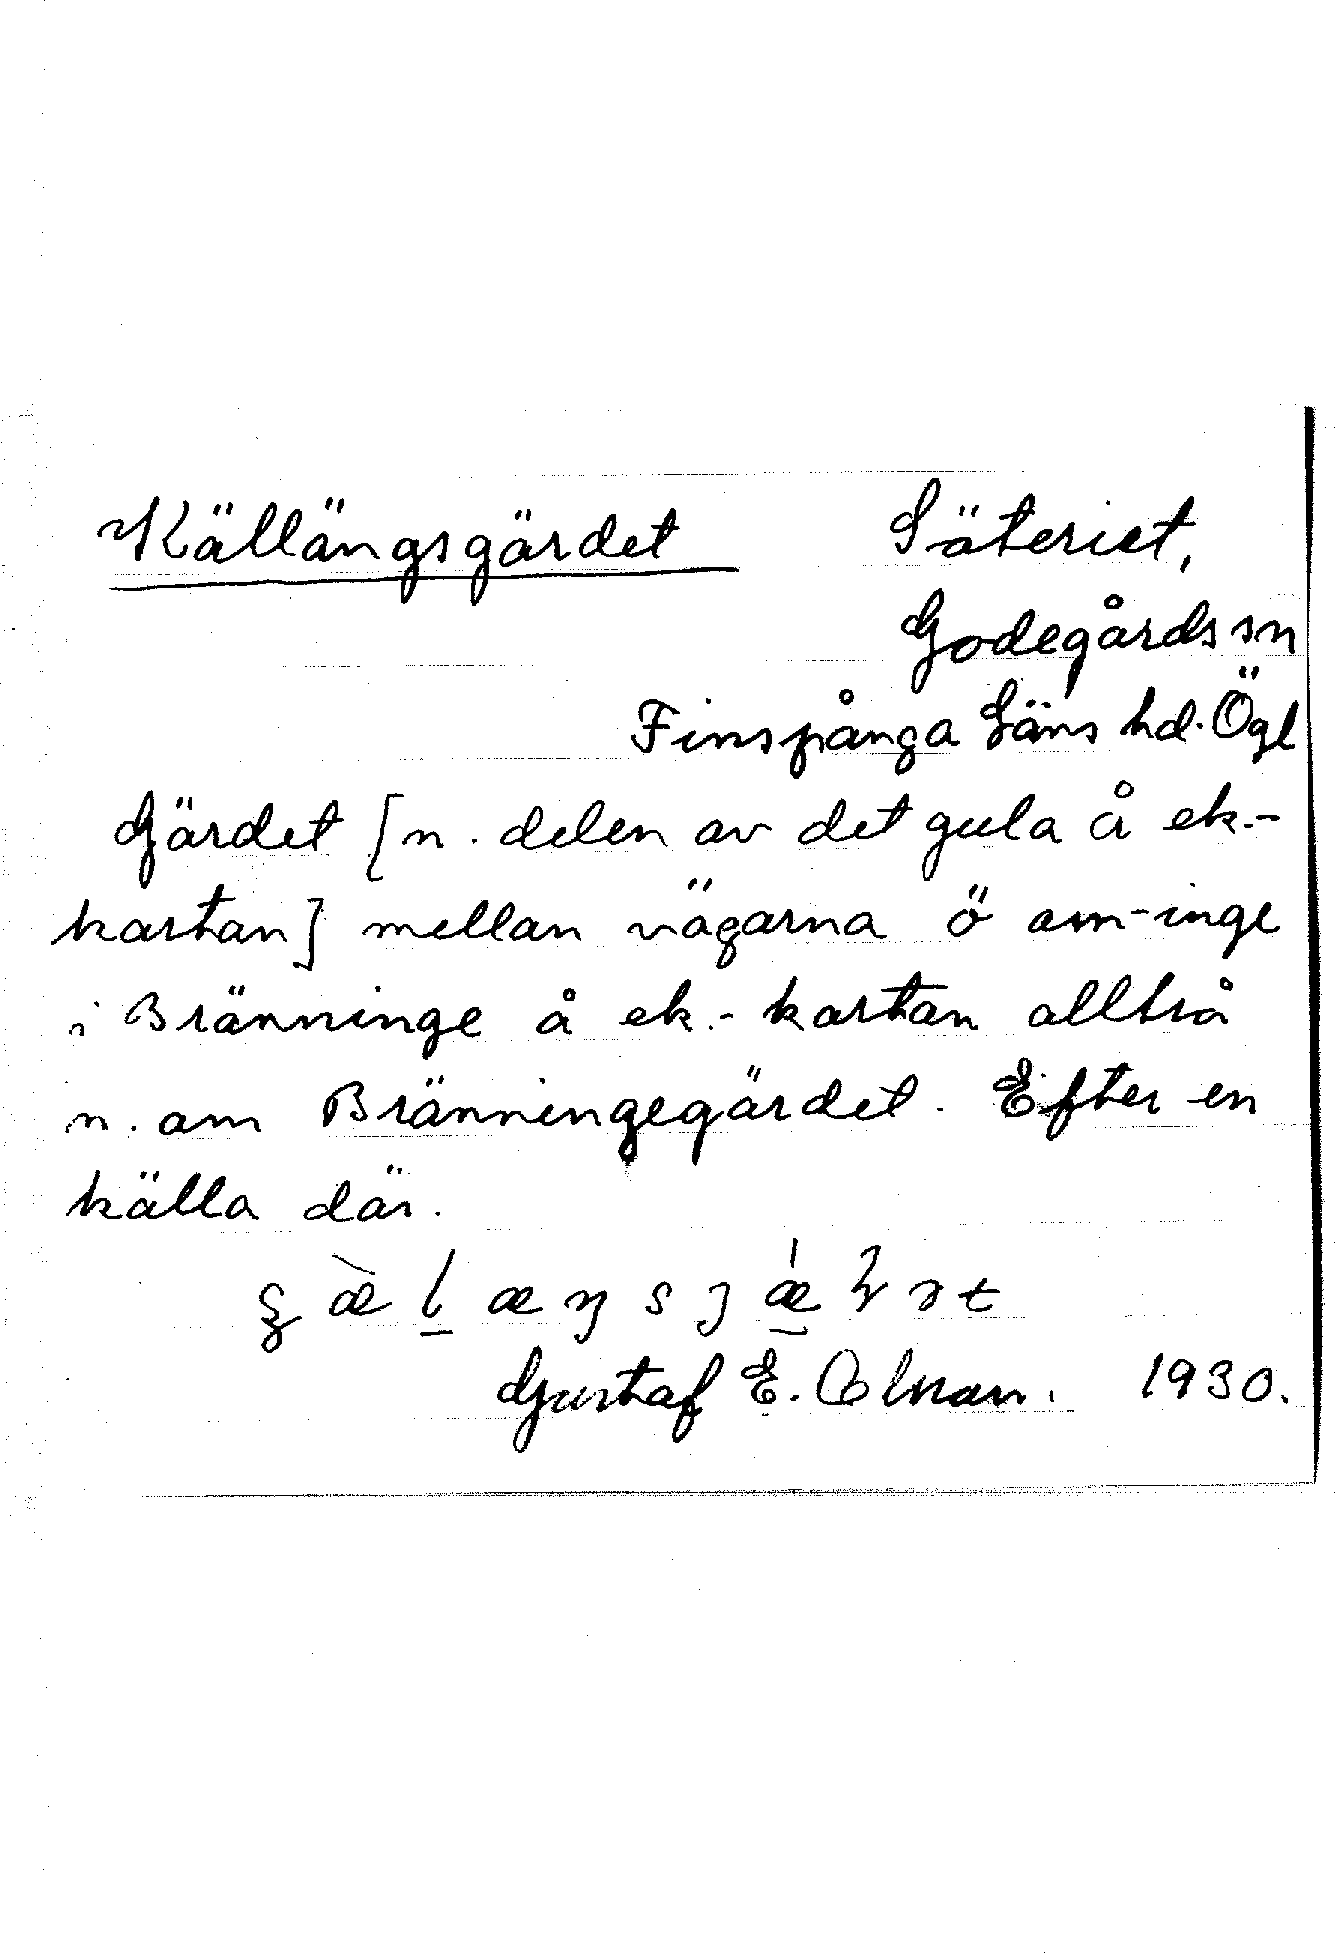 Källängsgärdet Säteriet,
Godegårds sn
Finspånga Läns hd. Ögl
Gärdet [n. delen av det gula å ek.-
kartan] mellan vägarna ö om -inge
i Bränninge å ek.- kartan alltså
n. om Bränningegärdet. Efter en
källa där.
Gustaf E. 1930.